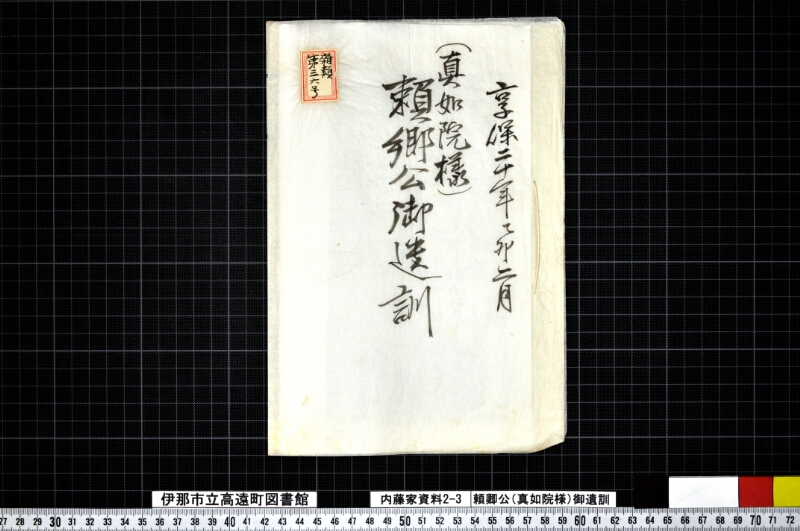 享保二十年乙卯二月
(真如院樣)
頼郷公御遺訓
雜類
第三六号
伊那市立高遠町図書館
内藤家資料2-3
頼卿公(真如院様)御遺訓
27 28 29 30 31 32 33 34 35 36 37 38 39 40 41 42 43 44 45 46 47 48 49 50 51 52 53 54 55 56 57 58 59 60 61 62 63 64 65 66 67 68 69 70 71 72